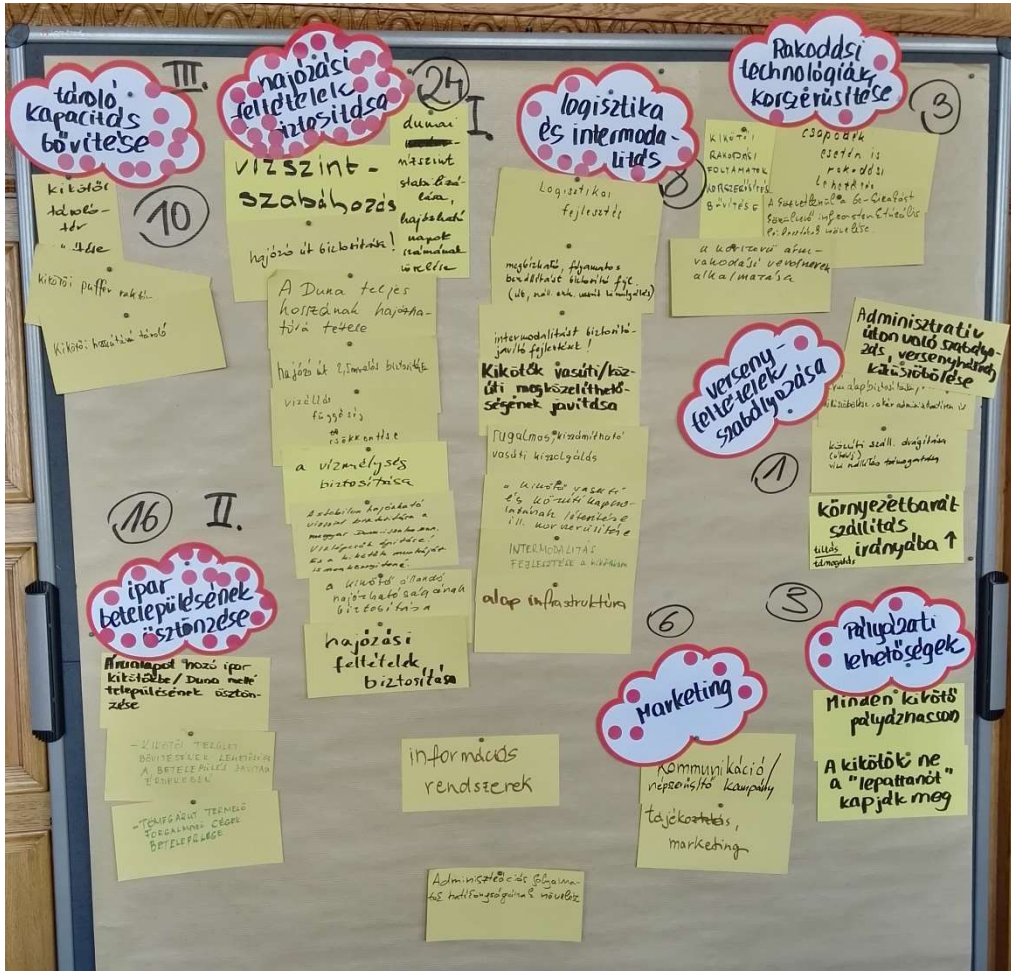 III.
tároló
kapacitás
bővítése
10
kikötői
tároló-
tér
kikötői puffer
kikötői
tároló
najózási
feltételek
biztosítása
24
I.
vízszint-
szabáhozás
hajózó út biztosítása!
dunai
vízszint
stabilizá-
lása,
hajózható
napok
számának
növelése
A Duna teljes
hosszának hajózha-
tóvá tétele
hajózó út 2,5 merülés biztosítása
vízállás
függőség
csökkentése
a vízmélység
biztosítása
A stabilan hajózható
vízszint
magyar Duna szakaszon.
Vízlépcsők építése!
a kikötő állandó
hajózhatóságának
biztosítása
hajózási
feltételek
biztosítása
logisztika
és intermoda-
litás
8
Logisztikai
fejlesztés
megbízható, folyamatos
beszállítást biztosító fejl.
intermodalitást biztosító-
javító fejlesztések!
Kikötők vasúti/köz-
úti megközelíthető-
ségének javítása
rugalmas, kiszámítható
vasúti kiszolgálás
a kikötő vasúti
és közúti kapcso-
latának létesítése
ill. korszerűsítése
INTERMODALITÁS
FEJLESZTÉSE a kikötőkben
alap infrastruktúra
Rakodási
technológiák
korszerűsítése
3
KIKÖTŐI
RAKODÁSI
FOLYAMATOK
KORSZERŰSÍTÉS
BŐVÍTÉSE
csapadék
esetén is
rakodási
lehetőség
a korszerű áru-
rakodási
alkalmazása
verseny-
feltételek
szabályozása
1
Adminisztratív
úton való szabályo-
zás, versenyhátrány
kiküszöbölése
közúti száll. drágítása
(útdíj)
vízi szállítás támogatása
környezetbarát
szállítás
irányába ↑
tiltás
támogatás
16
II.
ipar
betelepülésének
ösztönzése
Árualapot hozó ipar
kikötőkbe/Duna mellé
településének ösztön-
zése
- KIKÖTŐI TERÜLET
BŐVÍTÉSÉNEK LEHETŐSÉGE
A BETELEPÜLÉS JAVÍTÁSA
ÉRDEKÉBEN
- TÖMEGÁRUT TERMELŐ
FORGALMAZÓ CÉGEK
BETELEPÜLÉSE
információs
rendszerek
Adminisztrációs folyama-
tok hatékonyságának növelése
6
Marketing
Kommunikáció/
népszerűsítő kampány
tájékoztatás,
marketing
Pályázati
lehetőségek
Minden kikötő
pályázhasson
A kikötők ne
a "lepattanót"
kapják meg